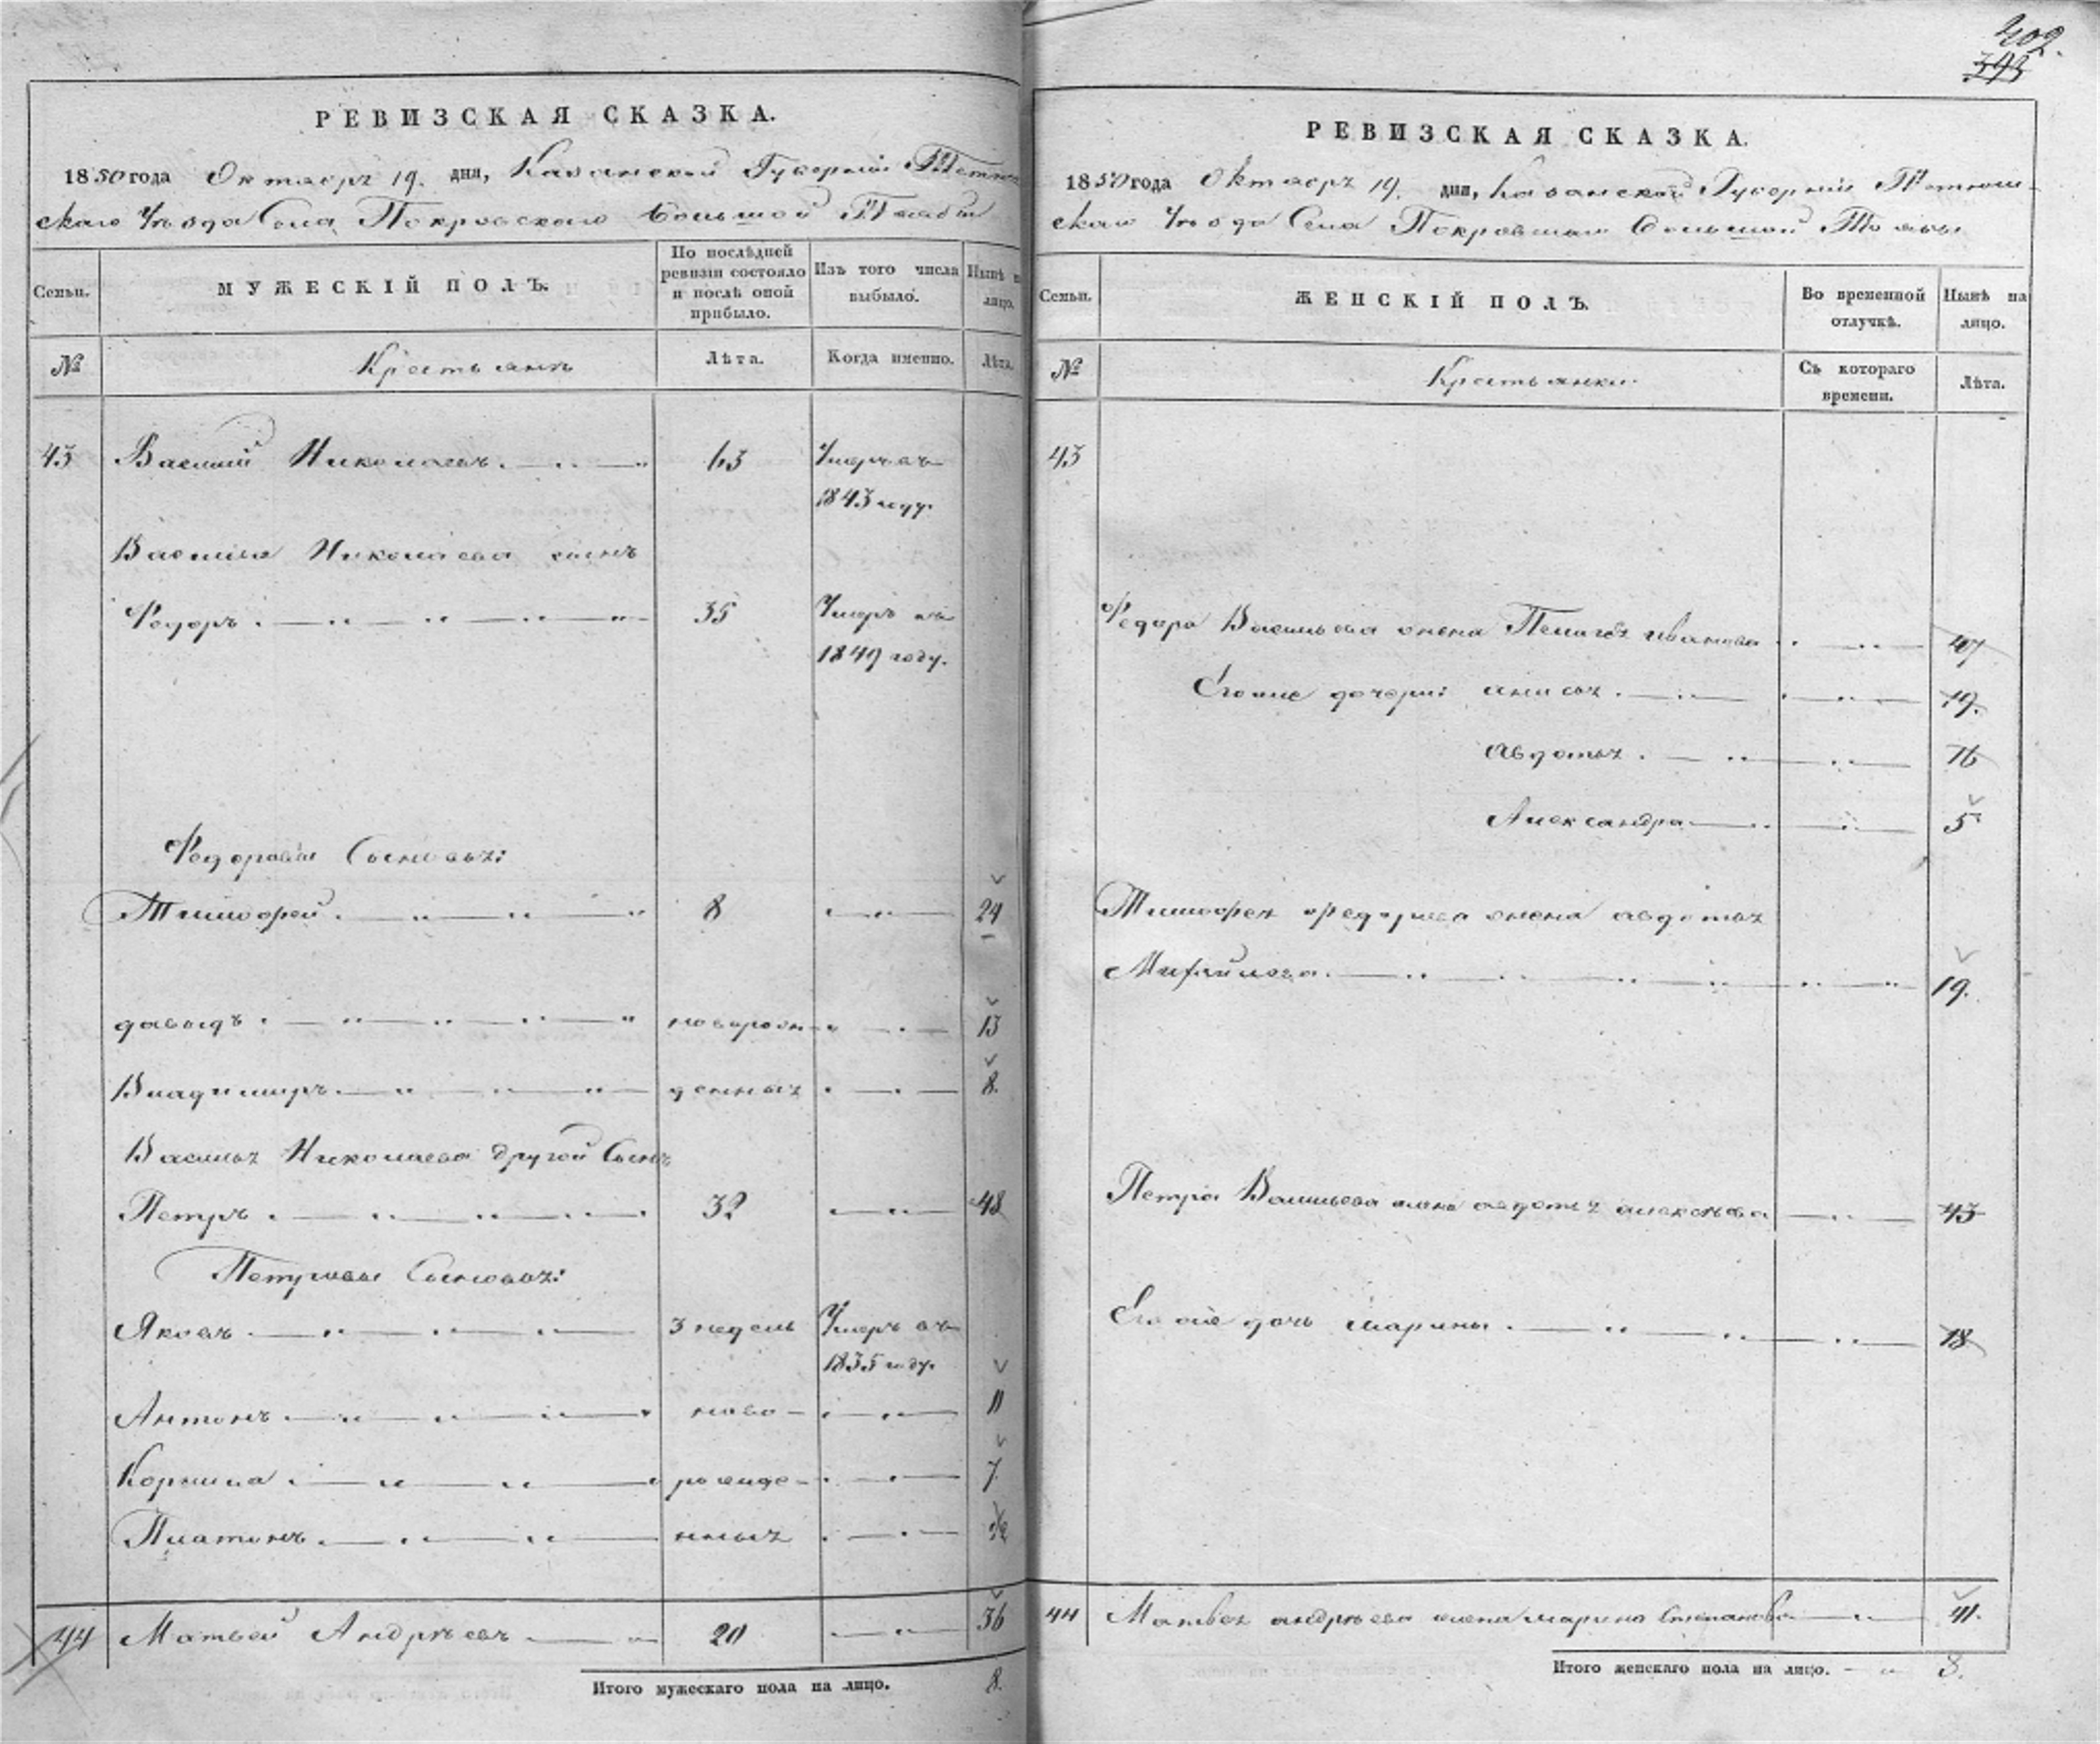 РЕВИЗСКАЯ СКАЗКА.
1850 года Октября 19. дня, Казанской Губернiи Тетюш
скаго Уѣзда Села Покровскаго Большой
Семьи.
МУЖЕСКIЙ ПОЛЪ.
По послѣдней ревизiи состояло и послѣ оной прибыло.
Изъ того числа выбыло.
Нынѣ на лицо.
№
Крестьяне
Лѣта.
Когда именно.
Лѣта.
43 Василий Николаевъ. 63 Умеръ въ
1843 году.
Василья Николаева сынъ
Федоръ. 35 Умеръ въ
1849 году.
Федоровы Сыновья:
Тимофей. 8 24
давыдъ новорож 13
Владимиръ денныя 8.
Василья Николаева другой Сынъ
Петръ 32 48
Петровы Сыновья:
Яковъ 3 недель Умеръ въ
1835 году.
Антонъ ново- 11
Корнила рожде- 7
Платонъ нныя 1/2
44 Матвей Андрѣевъ 20 36
Итого мужескаго пола на лицо. 8.
402.
393
РЕВИЗСКАЯ СКАЗКА.
1850 года Октября 19. дня, Казанской Губернiи Тетюш-
скаго Уѣзда Села Покровскаго Большой
Семьи.
ЖЕНСКIЙ ПОЛЪ.
Во временной отлучкѣ.
Нынѣ на лицо.
№
Крестьянки.
Съ котораго времени.
Лѣта.
43
Федора Васильева жена Пелагея иванова 47
Его же дочери: анисья 19.
авдотья 16
Александра 5
Тимофея федорова жена авдотья
Михайлова. 19.
Петра Васильева жена авдотья алексѣева 43
Его же дочь марина 18
44 Матвея андрѣева жена марина Степанова 41.
Итого женскаго пола на лицо. 8.